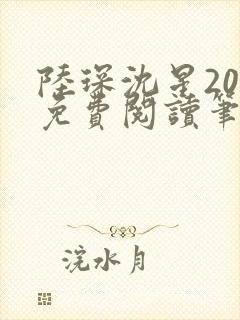 陸琛沈星20
免費閱讀筆
浣水月